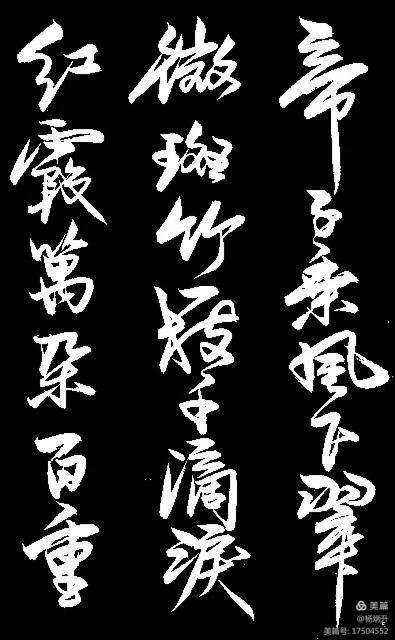 帝子乘風下翠
微斑竹枝千滴淚
紅霞萬朵百重
美篇
@杨炳升
美篇号: 17504552